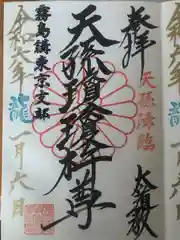 奉拝
天孫降臨
天孫瓊瓊杵尊
霧島講東京支部
令和六年
龍
一月六日